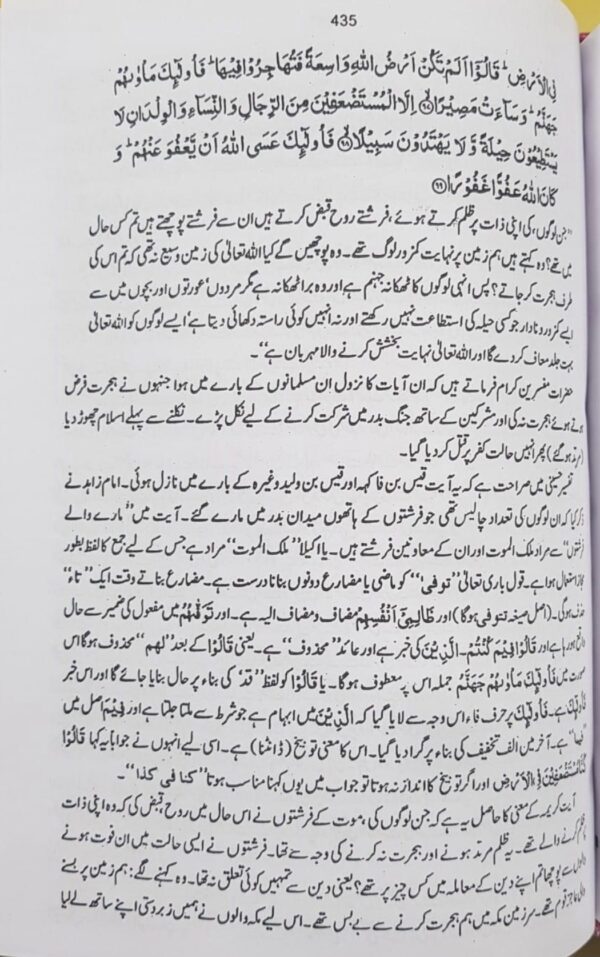 435
فِی الْاَرْضِ ؕ قَالُوْۤا اَلَمْ تَكُنْ اَرْضُ اللّٰهِ وَاسِعَةً فَتُهَاجِرُوْا فِیْهَا ؕ فَاُولٰٓئِكَ مَاْوٰىهُمْ
جَهَنَّمُ ؕ وَسَآءَتْ مَصِیْرًا ۙ﴿۹۷﴾ اِلَّا الْمُسْتَضْعَفِیْنَ مِنَ الرِّجَالِ وَالنِّسَآءِ وَالْوِلْدَانِ لَا
یَسْتَطِیْعُوْنَ حِیْلَةً وَّ لَا یَهْتَدُوْنَ سَبِیْلًا ۙ﴿۹۸﴾ فَاُولٰٓئِكَ عَسَى اللّٰهُ اَنْ یَّعْفُوَ عَنْهُمْ ؕ وَ
كَانَ اللّٰهُ عَفُوًّا غَفُوْرًا ﴿۹۹﴾
”جن لوگوں، کی اپنی ذات پر ظلم کرتے ہوئے، فرشتے روح قبض کرتے ہیں ان سے فرشتے پوچھتے ہیں تم کس حال
میں تھے؟ وہ کہتے ہیں ہم زمین پر نہایت کمزور لوگ تھے۔ وہ پوچھیں گے کیا اللہ تعالیٰ کی زمین وسیع نہ تھی کہ تم اس کی
طرف ہجرت کر جاتے؟ پس انہی لوگوں کا ٹھکانہ جہنم ہے اور وہ برا ٹھکانہ ہے مگر مردوں‘ عورتوں اور بچوں میں سے
ایسے کمزور و نادار جو کسی حیلہ کی استطاعت نہیں رکھتے اور نہ انہیں کوئی راستہ دکھائی دیتا ہے‘ ایسے لوگوں کو اللہ تعالیٰ
بہت جلد معاف کر دے گا اور اللہ تعالیٰ نہایت بخشش کرنے والا مہربان ہے“۔
حضرات مفسرین کرام فرماتے ہیں کہ ان آیات کا نزول ان مسلمانوں کے بارے میں ہوا جنہوں نے ہجرت فرض
ہوتے ہوئے ہجرت نہ کی اور مشرکین کے ساتھ جنگ بدر میں شرکت کرنے کے لیے نکل پڑے۔ نکلنے سے پہلے اسلام چھوڑ دیا
(مرتد ہو گئے) پھر انہیں حالت کفر پر قتل کر دیا گیا۔
تفسیر حسینی میں صراحت ہے کہ یہ آیت قیس بن فاکہہ اور قیس بن ولید وغیرہ کے بارے میں نازل ہوئی۔ امام زاہد نے
ذکر کیا کہ ان لوگوں کی تعداد چالیس تھی جو فرشتوں کے ہاتھوں میدان بدر میں مارے گئے۔ آیت میں ”مارے والے
فرشتوں“ سے مراد ملک الموت اور ان کے معاونین فرشتے ہیں۔ یا اکیلا ”ملک الموت“ مراد ہے جس کے لیے جمع کا لفظ بطور
مجاز استعمال ہوا ہے۔ قول باری تعالیٰ ”توفی“ کو ماضی یا مضارع دونوں بنانا درست ہے۔ مضارع بناتے وقت ایک ”تاء“
حذف ہوگی۔ (اصل صیغہ تتوفی ہوگا) اور ظَالِمِیْۤ اَنْفُسِهِمْ مضاف و مضاف الیہ ہے۔ اور تَوَفّٰهُمْ میں مفعول کی ضمیر سے حال
واقع ہو رہا ہے اور قَالُوْا فِیْمَ كُنْتُمْ۔ الَّذِیْنَ کی خبر ہے اور عائد ”محذوف“ ہے۔ یعنی قَالُوْا کے بعد ”لهم“ محذوف ہوگا اس
صورت میں فَاُولٰٓئِكَ مَاْوٰىهُمْ جَهَنَّمُ جملہ اس پر معطوف ہوگا۔ یا قَالُوْا کو لفظ ”قد“ کی بناء پر حال بنایا جائے گا اور اس خبر
فَاُولٰٓئِكَ ہے۔ فَاُولٰٓئِكَ پر حرف فاء اس وجہ سے لایا گیا کہ الَّذِیْنَ میں ابہام ہے جو شرط سے ملتا جلتا ہے اور فِیْمَ اصل میں
”فیما“ ہے۔ آخر میں الف تخفیف کی بناء پر گرا دیا گیا۔ اس کا معنی توبیخ (ڈانٹنا) ہے۔ اسی لیے انہوں نے جواباً یہ کہا قَالُوْا
كُنَّا مُسْتَضْعَفِیْنَ فِی الْاَرْضِ اور اگر توبیخ کا انداز نہ ہوتا تو جواب میں یوں کہنا مناسب ہوتا ”كنا فی كذا“۔
آیت کریمہ کے معنی کا حاصل یہ ہے کہ جن لوگوں کی، موت کے فرشتوں نے اس حال میں روح قبض کی کہ وہ اپنی ذات
پر ظلم کرنے والے تھے۔ یہ ظلم مرتد ہونے اور ہجرت نہ کرنے کی وجہ سے تھا۔ فرشتوں نے ایسی حالت میں ان فوت ہونے
والوں سے پوچھا تم اپنے دین کے معاملہ میں کس چیز پر تھے؟ یعنی دین سے تمہیں کوئی تعلق نہ تھا۔ وہ کہنے لگے: ہم زمین پر بسنے
والی عاجز قوم تھے۔ سرزمین مکہ میں ہم ہجرت کرنے سے بے بس تھے۔ اس لیے مکہ والوں نے ہمیں زبردستی اپنے ساتھ لے لیا